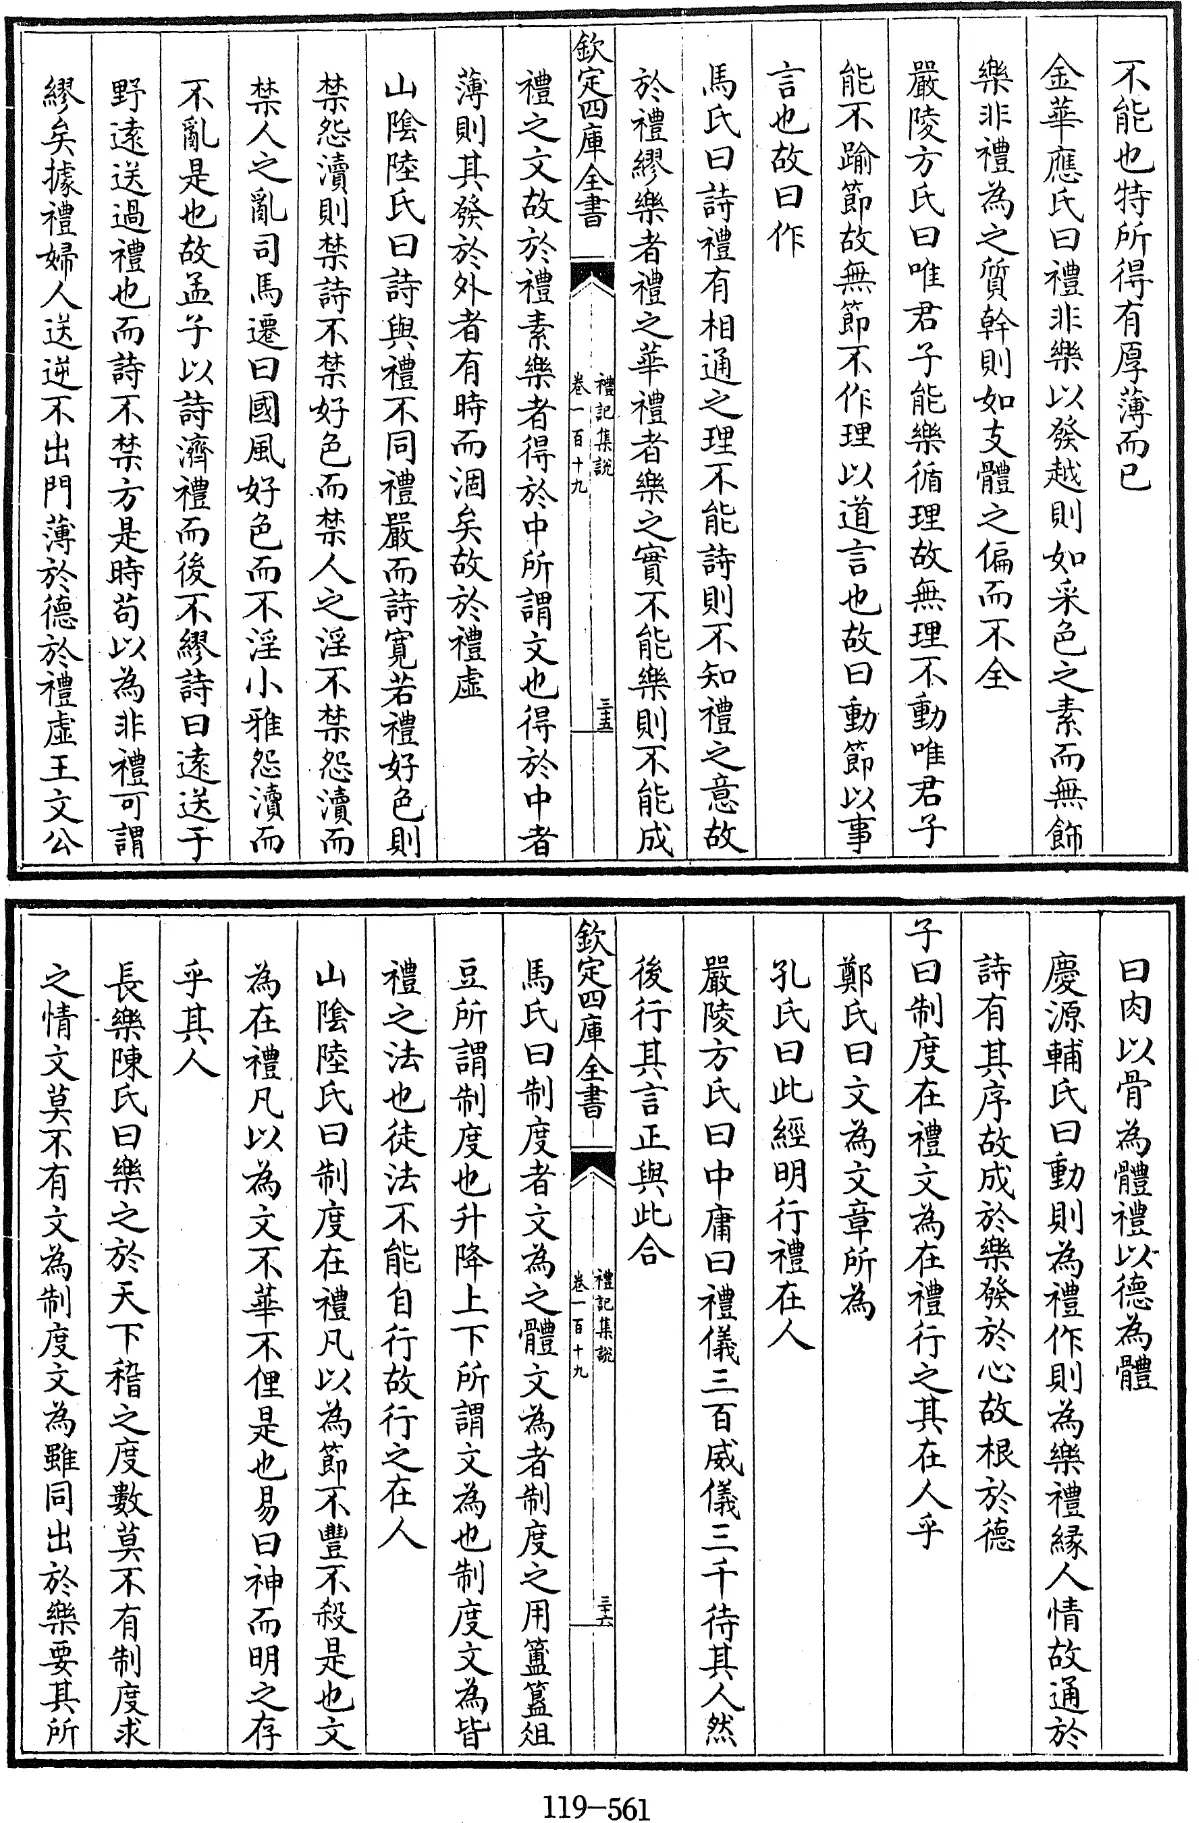 不能也特所得有厚薄而已
金華應氏曰禮非樂以發越則如采色之素而無飾
樂非禮為之質幹則如支體之偏而不全
嚴陵方氏曰唯君子能樂循理故無理不動唯君子
能不踰節故無節不作理以道言也故曰動節以事
言也故曰作
馬氏曰詩禮有相通之理不能詩則不知禮之意故
於禮繆樂者禮之華禮者樂之實不能樂則不能成
欽定四庫全書
禮記集說
卷一百十九
三十五
禮之文故於禮素樂者得於中所謂文也得於中者
薄則其發於外者有時而涸矣故於禮虛
山陰陸氏曰詩與禮不同禮嚴而詩寬若禮好色則
禁怨瀆則禁詩不禁好色而禁人之淫不禁怨瀆而
禁人之亂司馬遷曰國風好色而不淫小雅怨瀆而
不亂是也故孟子以詩濟禮而後不繆詩曰遠送于
野遠送過禮也而詩不禁方是時苟以為非禮可謂
繆矣據禮婦人送逆不出門薄於德於禮虛王文公
曰肉以骨為體禮以德為體
慶源輔氏曰動則為禮作則為樂禮緣人情故通於
詩有其序故成於樂發於心故根於德
子曰制度在禮文為在禮行之其在人乎
鄭氏曰文為文章所為
孔氏曰此經明行禮在人
嚴陵方氏曰中庸曰禮儀三百威儀三千待其人然
後行其言正與此合
欽定四庫全書
禮記集說
卷一百十九
三十六
馬氏曰制度者文為之體文為者制度之用簠簋俎
豆所謂制度也升降上下所謂文為也制度文為皆
禮之法也徒法不能自行故行之在人
山陰陸氏曰制度在禮凡以為節不豐不殺是也文
為在禮凡以為文不華不俚是也易曰神而明之存
乎其人
長樂陳氏曰樂之於天下稽之度數莫不有制度求
之情文莫不有文為制度文為雖同出於樂要其所
119-561